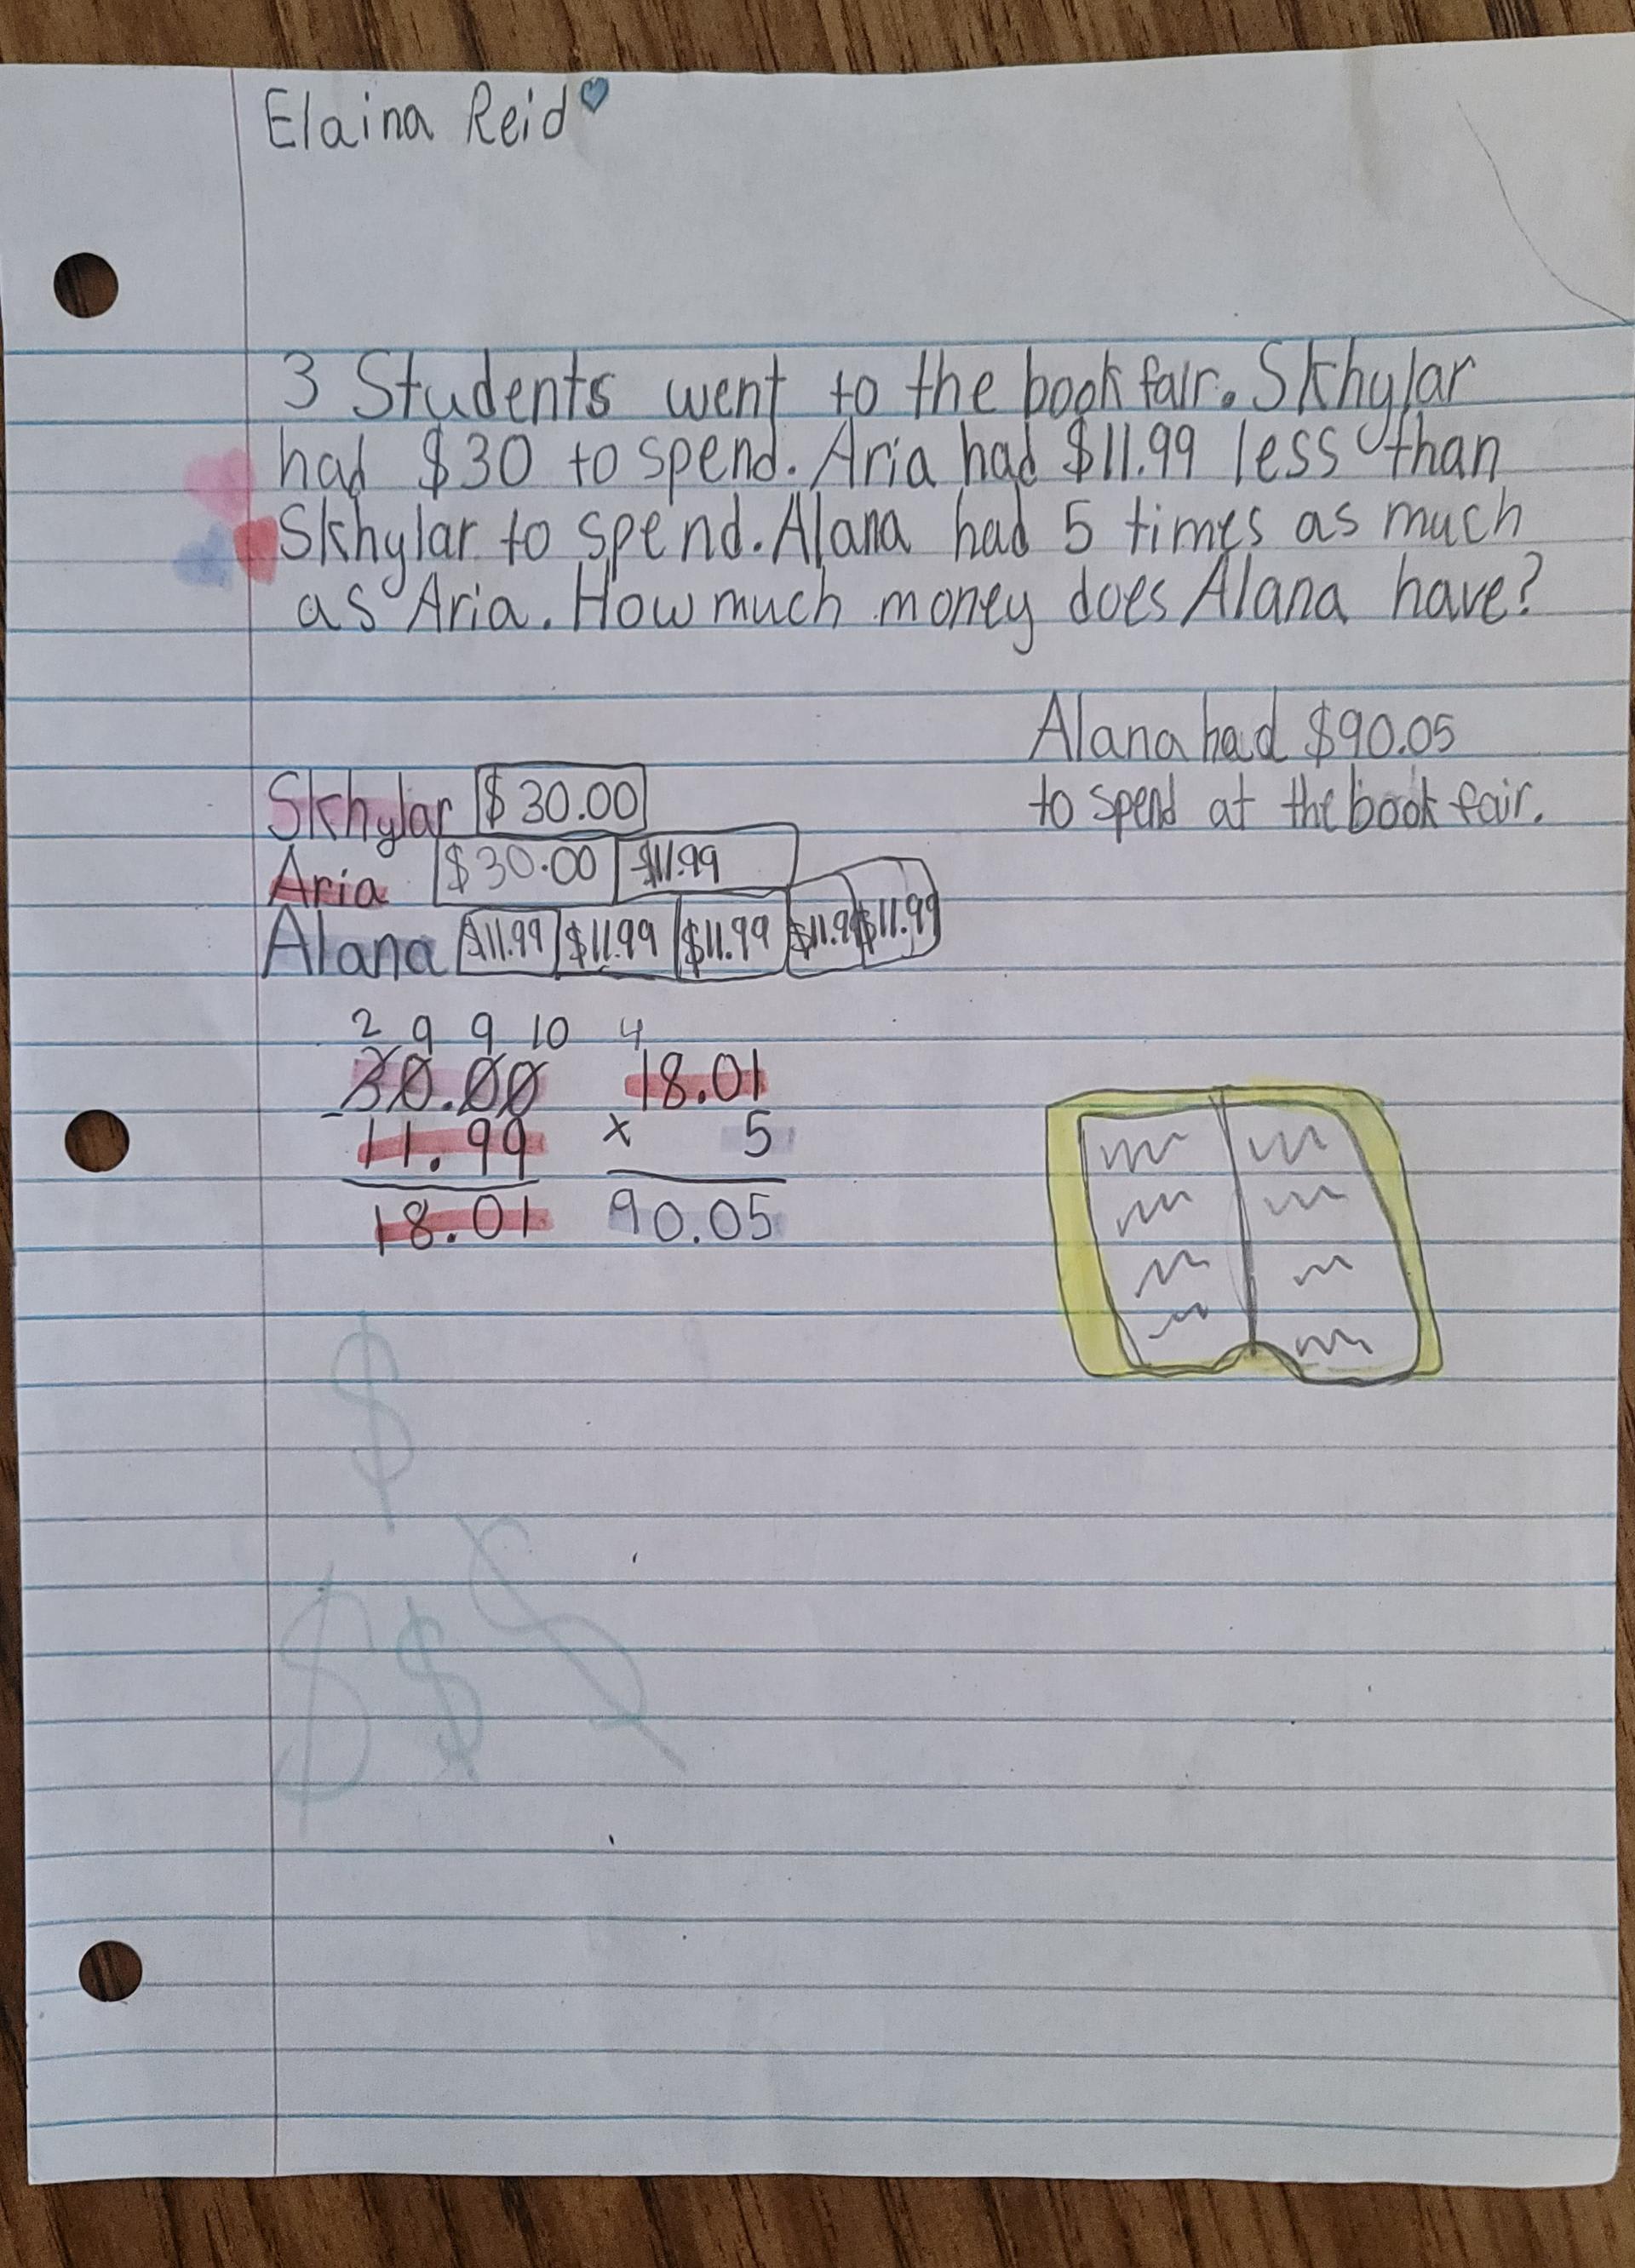 Elaina Reid
3 Students went to the book fair. Skhylar
had $30 to spend. Aria had $11.99 less than
Skhylar to spend. Alana had 5 times as much
as Aria. How much money does Alana have?
Alana had $90.05
to spend at the book fair.
Skhylar $30.00
Aria $30.00 $11.99
Alana $11.99 $11.99 $11.99 $11.99 $11.99
2 9 9 10
30.00
- 11.99
18.01
4
18.01
x 5
90.05
$
$ $ $